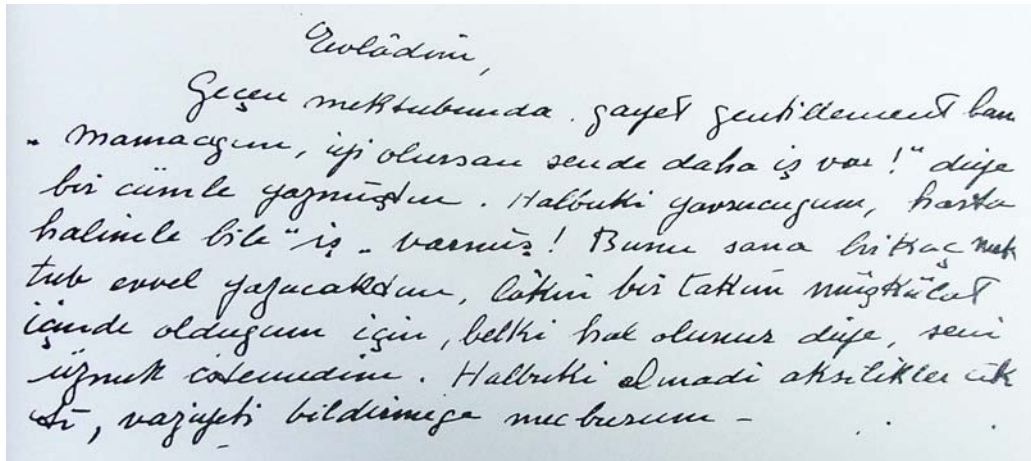 Evlâdım,
Geçen mektubunda gayet gentillement ban
„Mamacığım, iyi olursan sende daha iş var!" diye
bir cümle yazmıştın. Halbuki yavrucuğum, hasta
halimle bile "iş„ varmış! Bunu sana birkaç mek
tub evvel yazacaktım, lâkin bir takım müşkülat
içinde olduğum için, belki hal olunur diye, seni
üzmek istemedim. Halbuki olmadı aksilikler çık
tı, vaziyeti bildirmege mecburum -